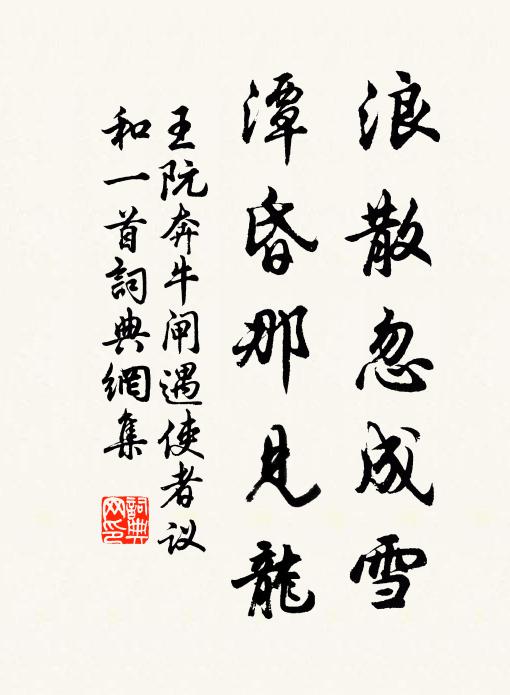 浪散忽成雪
潭昏那見龍
王阮奔牛闸遇使者议
和一首詞典網集
詞典
网印